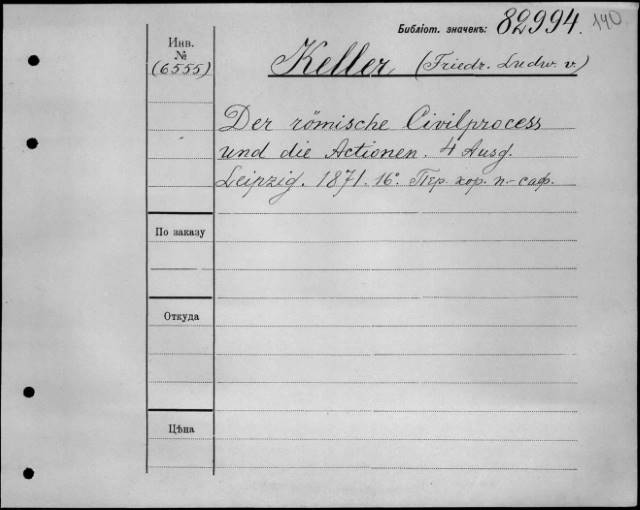 Библіот. значекъ: 82994. 140
Инв.
№
(6555)
Keller (Friedr. Ludw. v.)
Der römische Civilprocess
und die Actionen. 4 Ausg.
Leipzig. 1871. 16°. Пер. кор. п.-саф.
По заказу
Откуда
Цѣна